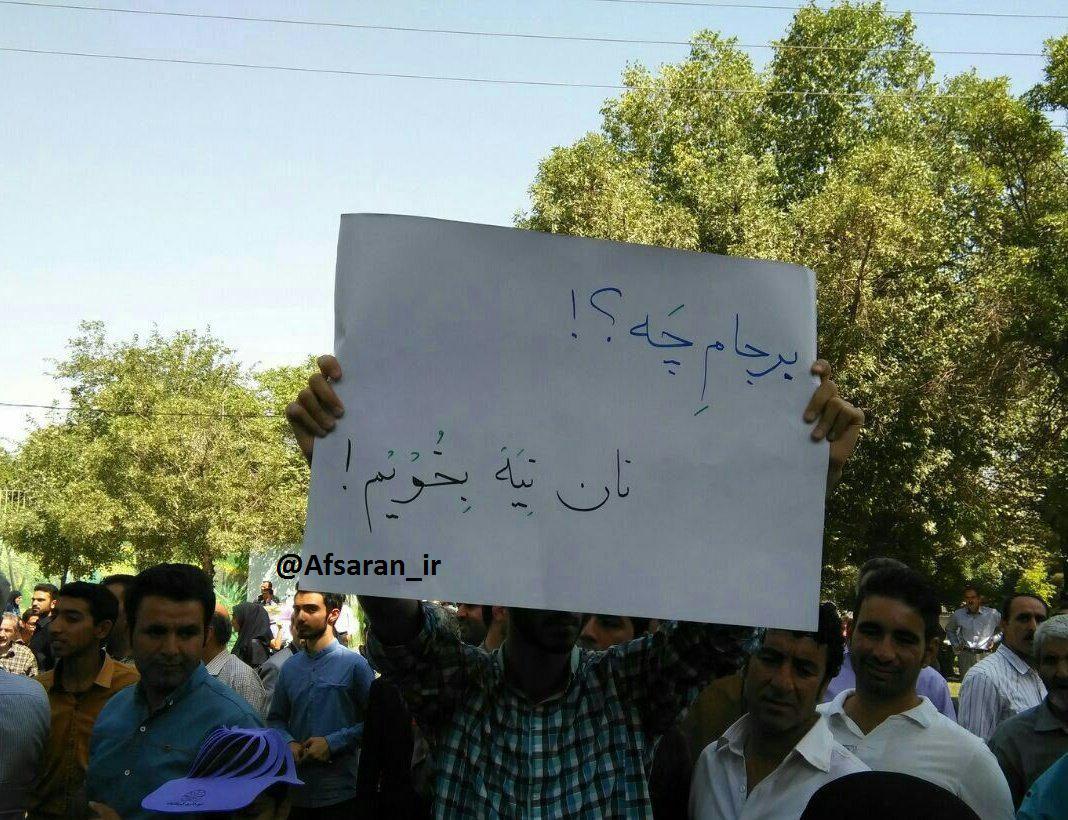 برجامِ چَه؟!
نان نِیَهْ بِخُوْیْم!
@Afsaran_ir